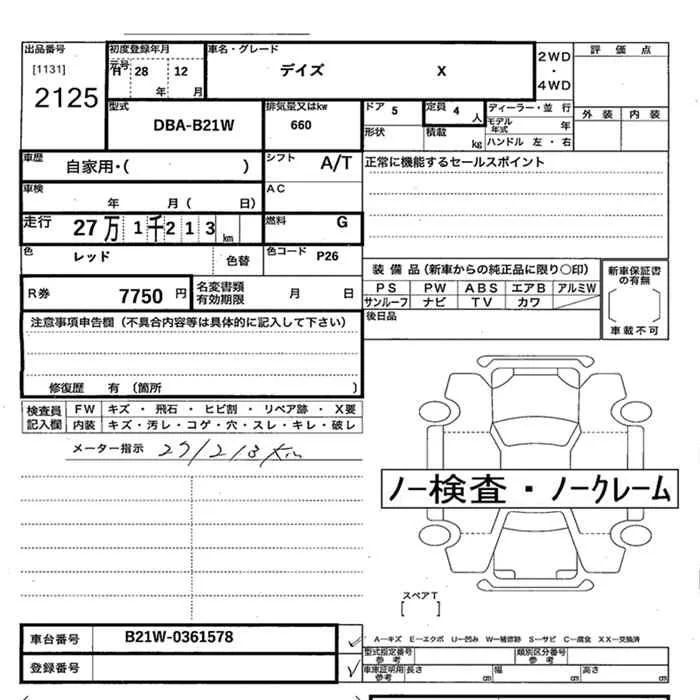 出品番号 初度登録年月 車名・グレード 評価点
[1131] 元号 H 28 12 デイズ X 2WD・4WD
2125 年 月
型式 排気量又はkw ドア 5 定員 4 人 ディーラー・並 行 外装 内装
DBA-B21W 660 形状 積載 kg モデル年式 年
ハンドル 左・右
車歴 自家用・( ) シフト A/T 正常に機能するセールスポイント
車検 年 月 ( 日) AC
走行 27万1千213km 燃料 G
色 レッド 色替 色コード P26
装備品(新車からの純正品に限り○印) 新車保証書の有無
R券 7750 円 名変書類有効期限 月 日 PS PW ABS エアB アルミW
サンルーフ ナビ TV カワ
注意事項申告欄(不具合内容等は具体的に記入して下さい) 後日品 車載不可
修復歴 有 (箇所 )
検査員記入欄 FW キズ・飛石・ヒビ割・リペア跡・X要
内装 キズ・汚レ・コゲ・穴・スレ・キレ・破レ
メーター指示 271213Km
ノー検査・ノークレーム
スペアT
[ ]
車台番号 B21W-0361578 A-キズ E-エクボ U-凹み W-補修跡 S-サビ C-腐食 XX-交換済
型式指定番号 参考 類別区分番号 参考
登録番号 車庫証明用 参考 長さ cm 幅 cm 高さ cm